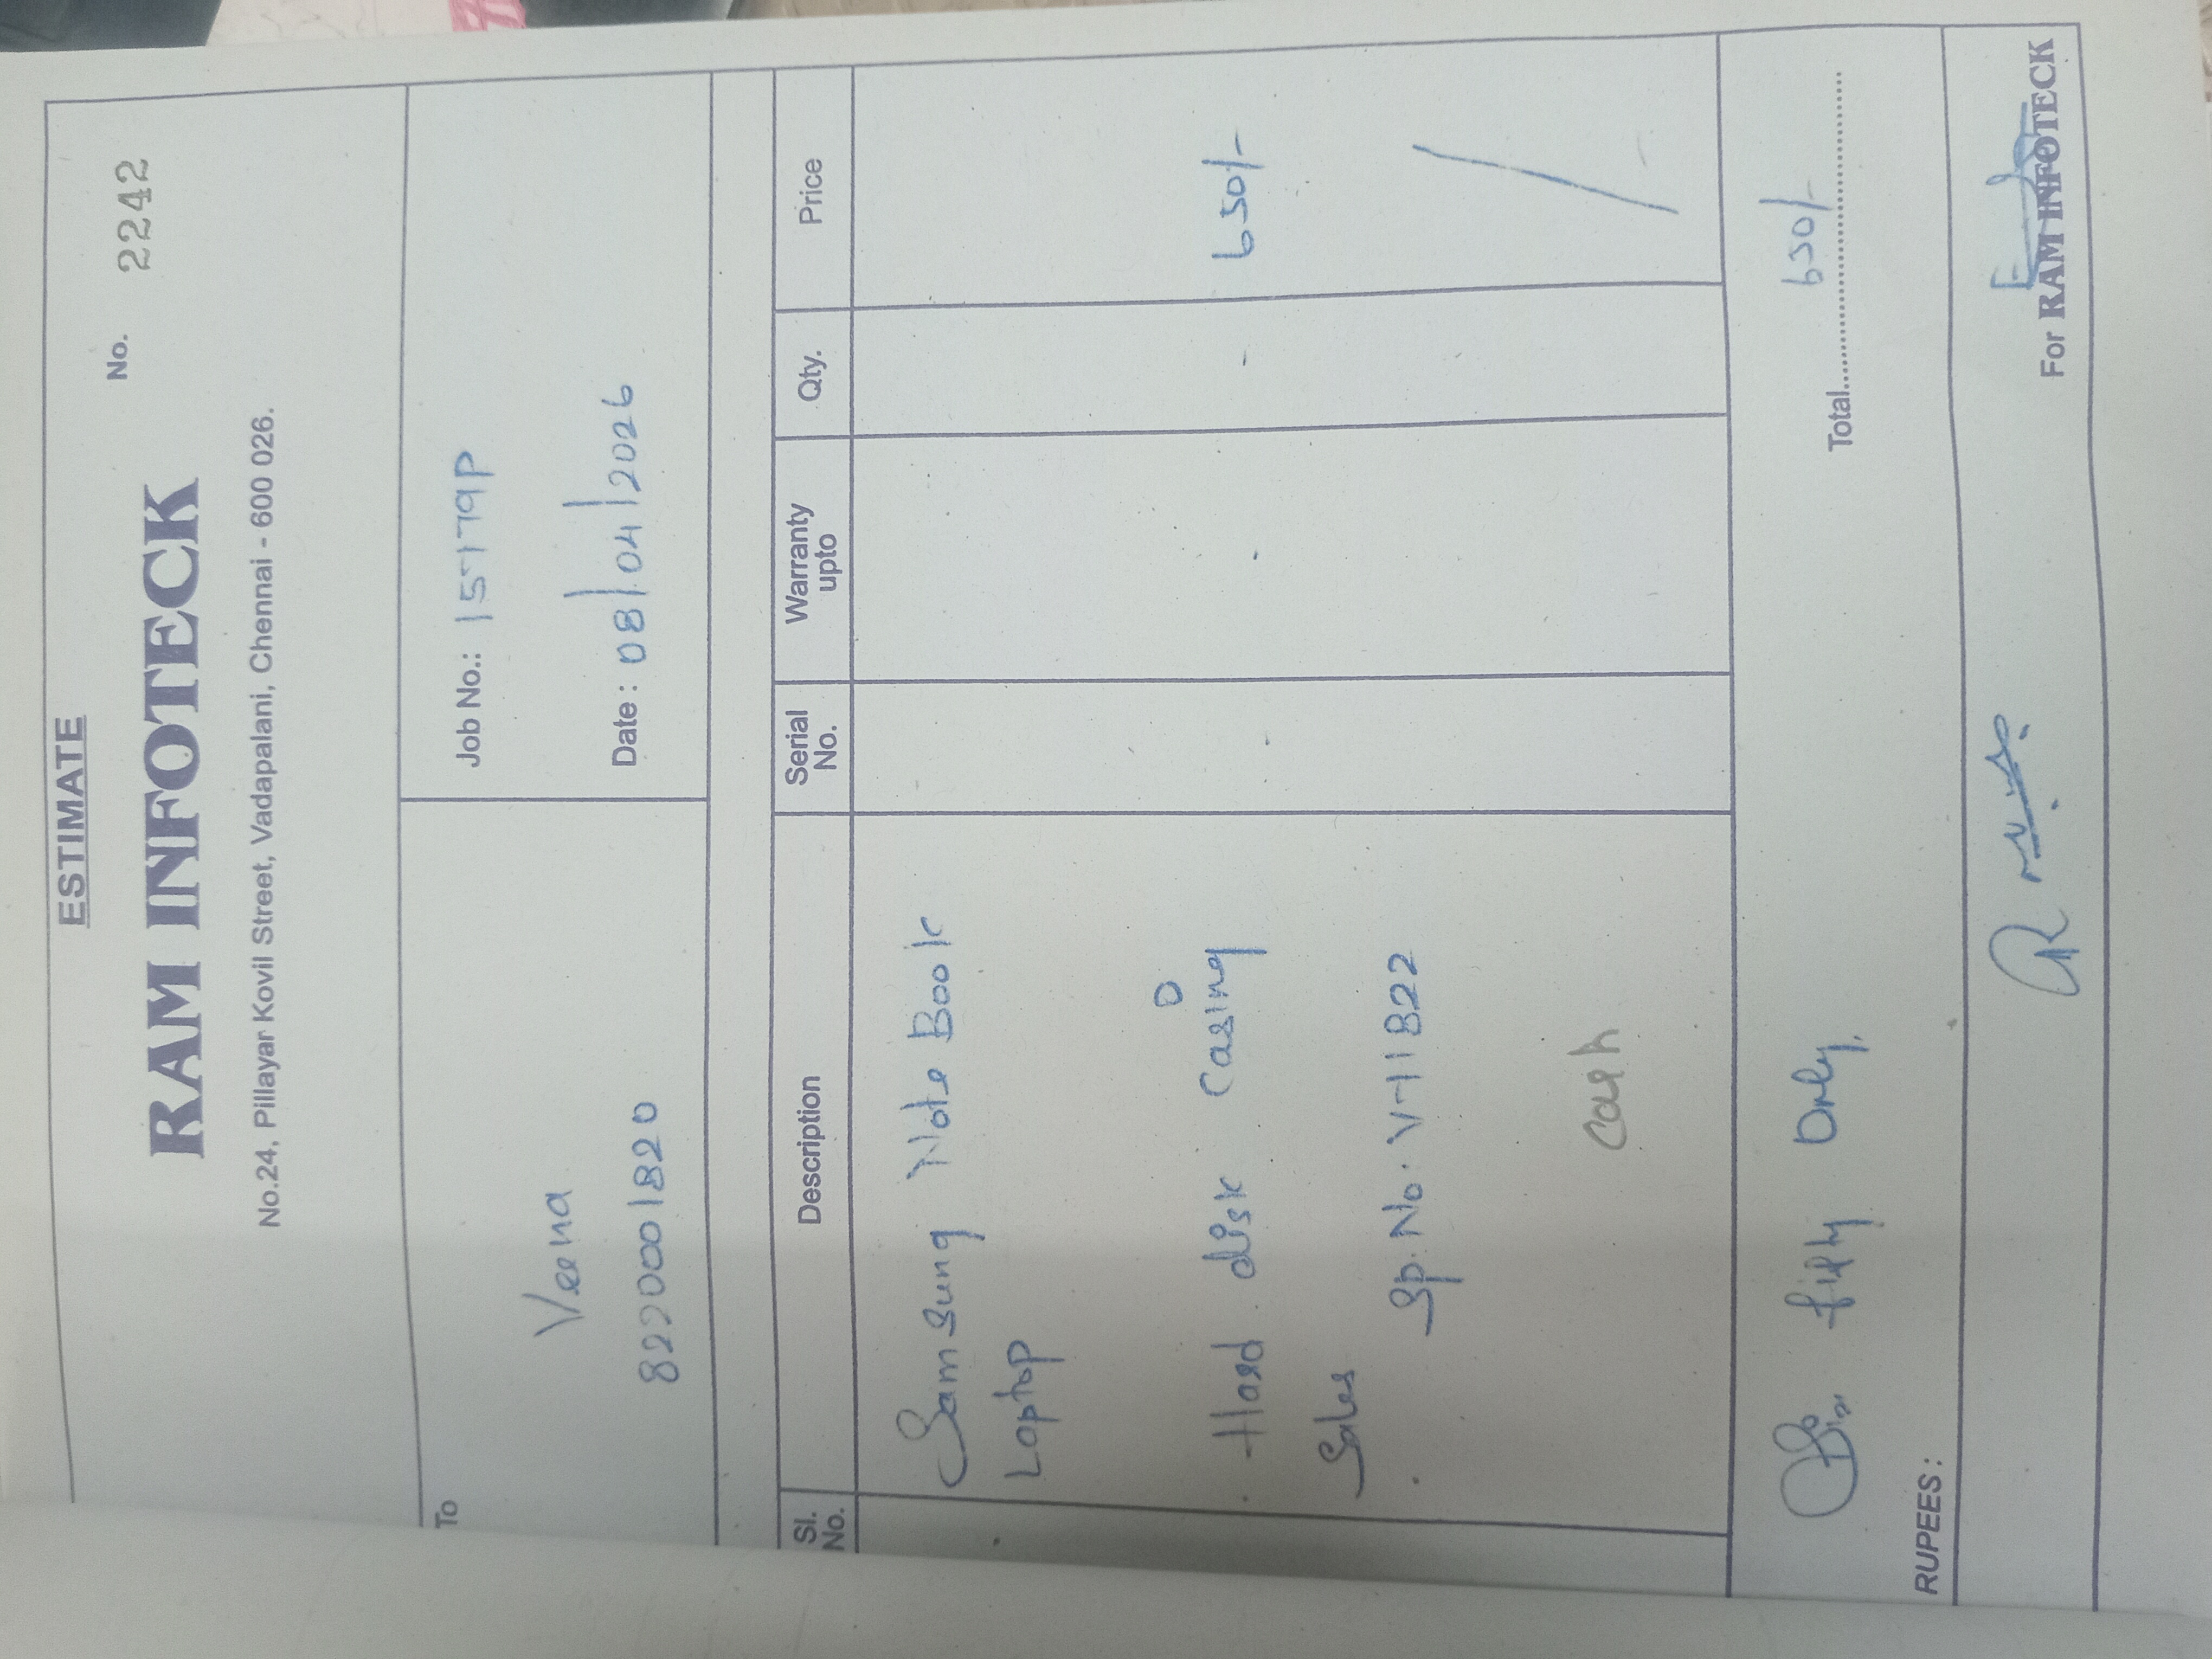 ESTIMATE
RAM INFOTECK
No. 2242
No.24, Pillayar Kovil Street, Vadapalani, Chennai - 600 026.
To
Veena
8220001820
Job No.: 15179P
Date : 08/04/2026
Sl. No. Description Serial No. Warranty upto Qty. Price
Samsung Note Book
Laptop
Hard disk Casing - - - 650/-
Sales
Sp. No. V-11822
Cash
fifty Only.
Total 650/-
RUPEES :
For RAM INFOTECK